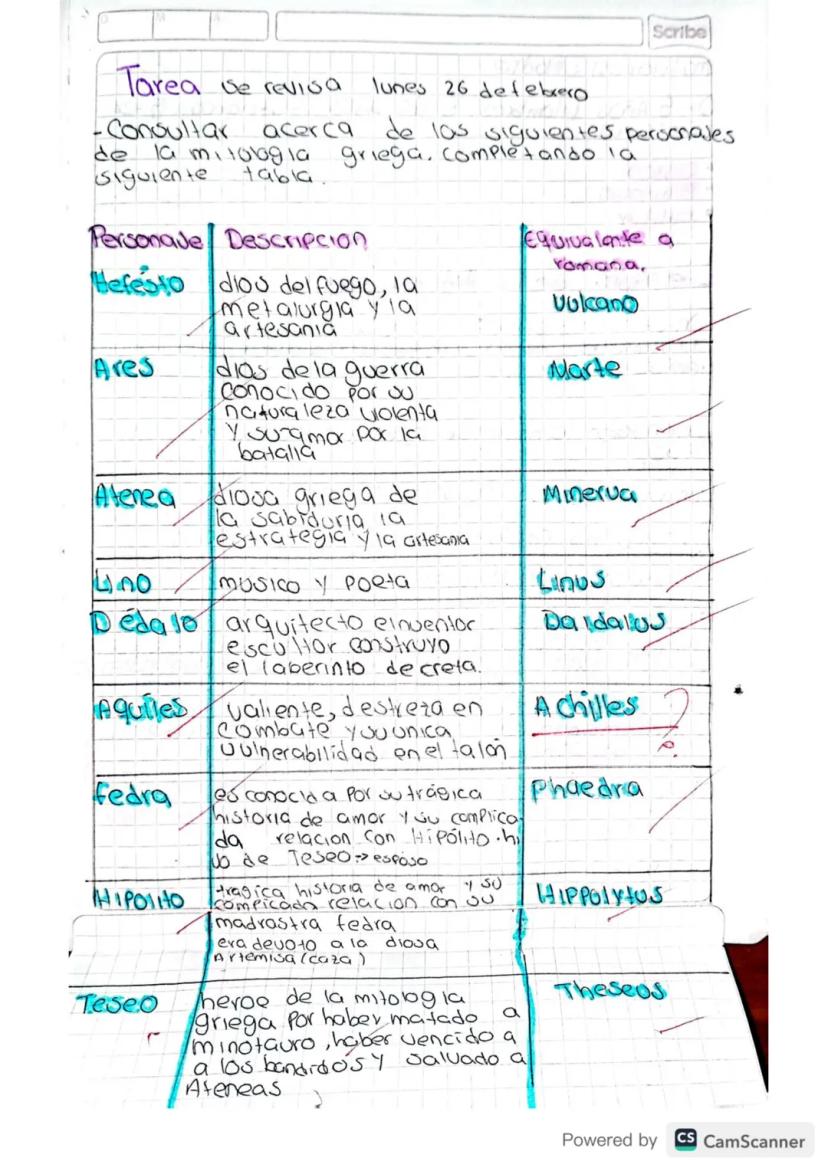 Scribe
Tarea se revisa lunes 26 de febrero
- Consultar acerca de los siguientes personajes
de la mitologia griega. completando la
siguiente tabla.
Personaje Descripcion Equivalente a
romana.
Hefésto dios del fuego, la
metalurgia y la
artesania
Vulcano
Ares dios de la guerra
conocido por su
naturaleza violenta
y su amor por la
batalla
Marte
Atenea diosa griega de
la sabiduria la
estrategia y la artesania
Minerva
Lino musico y poeta Linus
Dédalo arquitecto e inventor
escultor construyo
el laberinto de creta.
Daidalus
Aquiles valiente, destreza en
combate y su unica
vulnerabilidad en el talón
Achilles ?
fedra es conocida por su trágica
historia de amor y su complica-
da relacion con Hipólito. hi
jo de Teseo => esposo
Phaedra
Hipolito tragica historia de amor y su
complicada relacion con su
madrastra fedra
era devoto a la diosa
Artemisa (caza)
Hippolytus
Teseo heroe de la mitologia
griega por haber matado a
minotauro, haber vencido a
a los bandidos y salvado a
Ateneas
Theseos
Powered by CS CamScanner